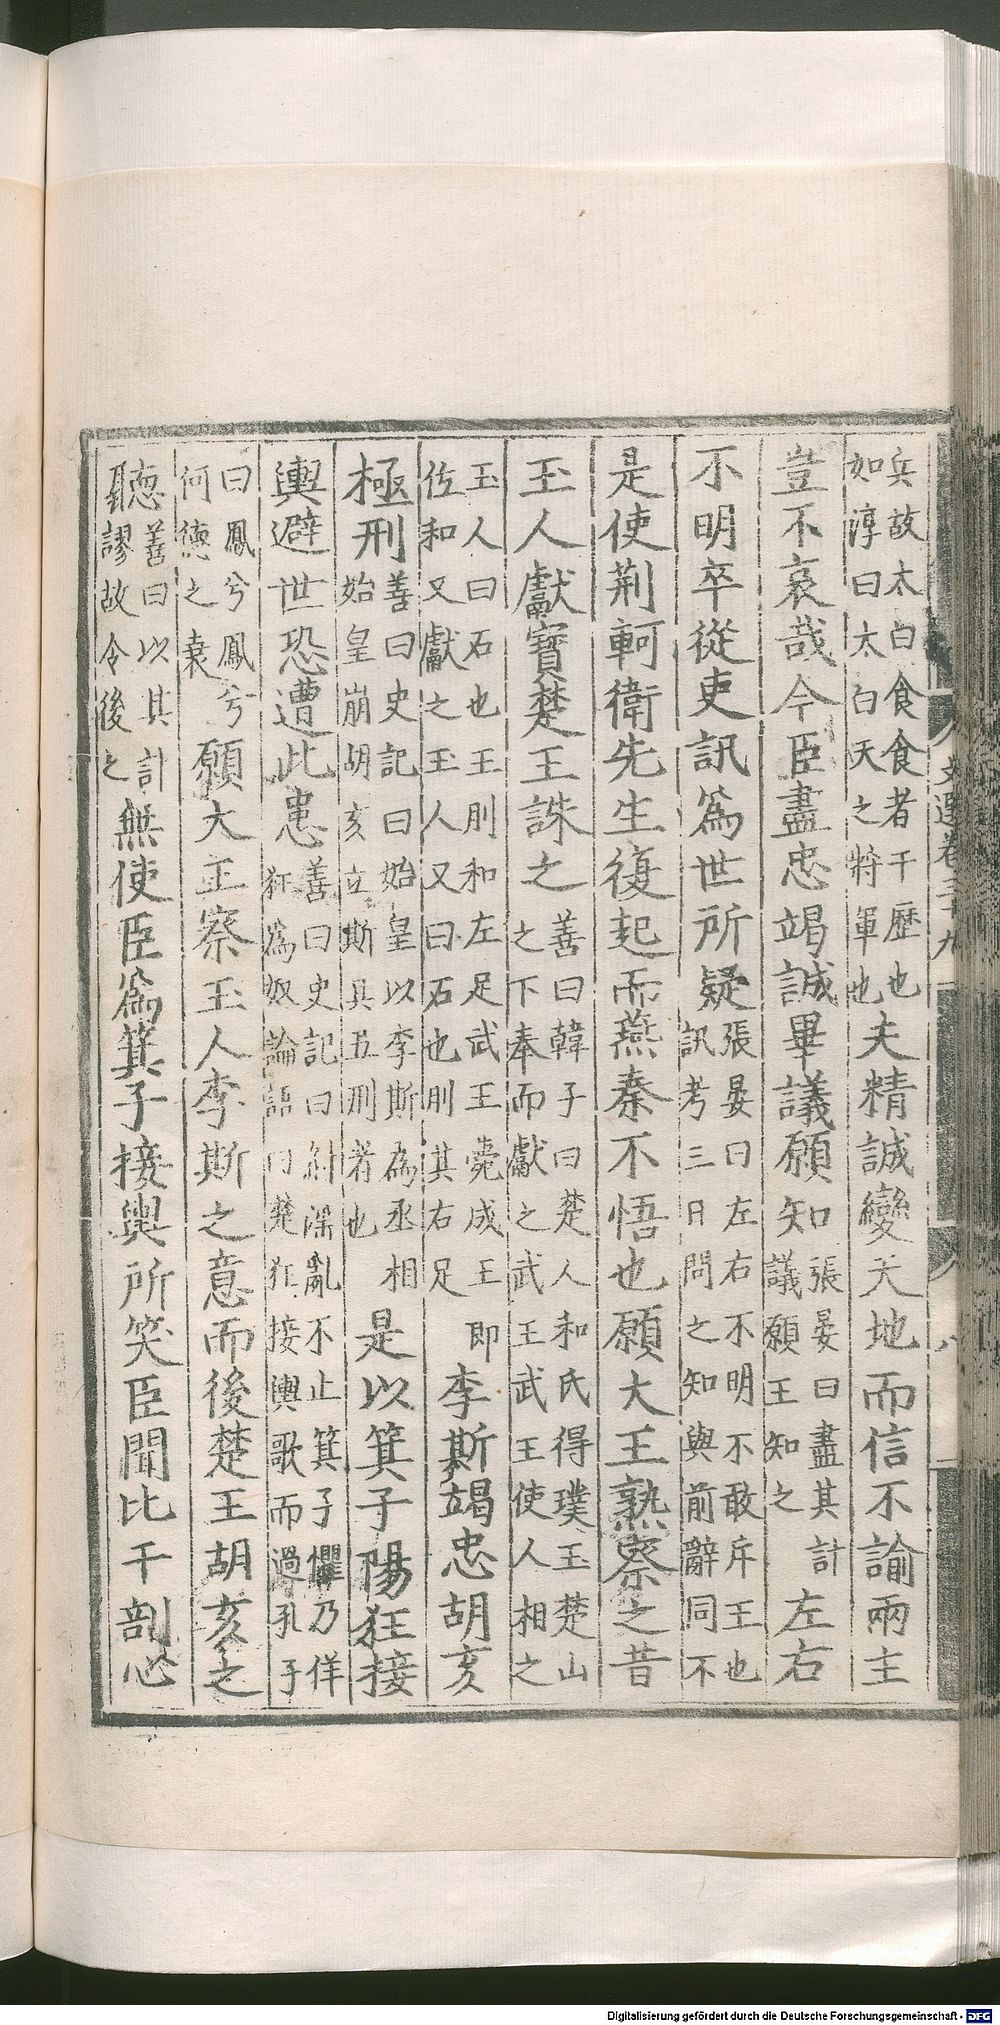 文選卷三十九 八
兵故太白食食者干歷也如淳曰太白天之將軍也夫精誠變天地而信不諭兩主
豈不哀哉今臣盡忠竭誠畢議願知張晏曰盡其計議願王知之左右
不明卒從吏訊爲世所疑張晏曰左右不明不敢斥王也訊考三日問之知與前辭同不
是使荆軻衛先生復起而燕秦不悟也願大王熟察之昔
玉人獻寶楚王誅之善曰韓子曰楚人和氏得璞玉楚山之下奉而獻之武王武王使人相之
玉人曰石也王刖和左足武王薨成王即佐和又獻之玉人又曰石也刖其右足李斯竭忠胡亥
極刑善曰史記曰始皇以李斯為丞相始皇崩胡亥立斯具五刑者也是以箕子陽狂接
輿避世恐遭此患善曰史記曰紂淫亂不止箕子懼乃佯狂爲奴論語曰楚狂接輿歌而過孔子
曰鳳兮鳳兮何德之衰願大王察玉人李斯之意而後楚王胡亥之
聽善曰以其計謬故令後之無使臣爲箕子接輿所笑臣聞比干剖心
Digitalisierung gefördert durch die Deutsche Forschungsgemeinschaft - DFG